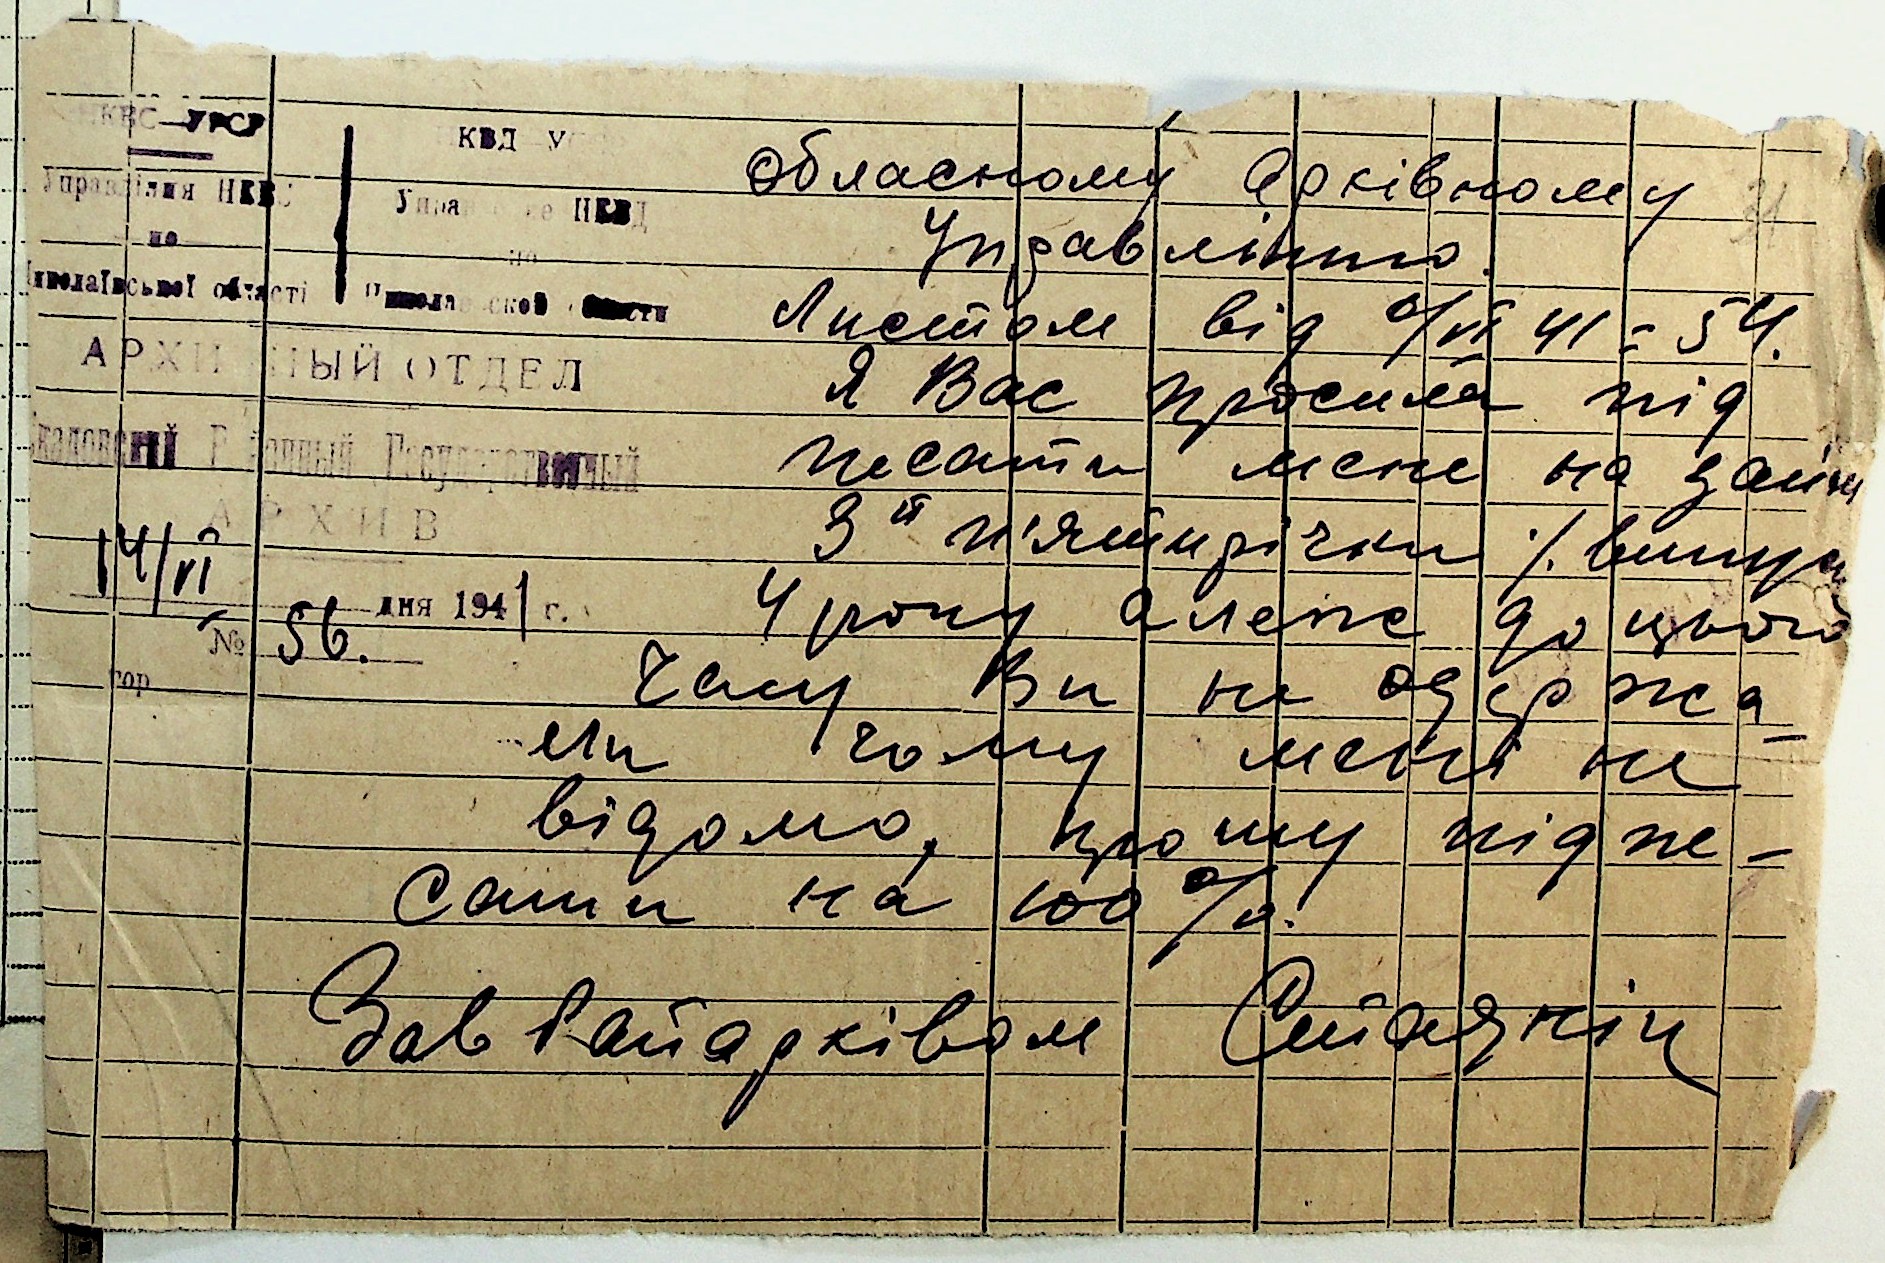 НКВС УРСР
Управління НКВС
по
Миколаївської області
НКВД УССР
Управление НКВД
по
Николаевской области
АРХИВНЫЙ ОТДЕЛ
Скадовский Районный Государственный
АРХИВ
14/VI
дня 1941 г.
№ 56.
гор
21
Обласному Архівному
Управлінню.
Листом від /VI 41 - 54.
Я Вас просила під
песати мене на займ
3й п'ятирічки /. випуск
4 року алеже до цього
часу Ви не одержа-
ли чому мені не
відомо, прошу підпе-
сати на 100 %.
Зав Райархівом